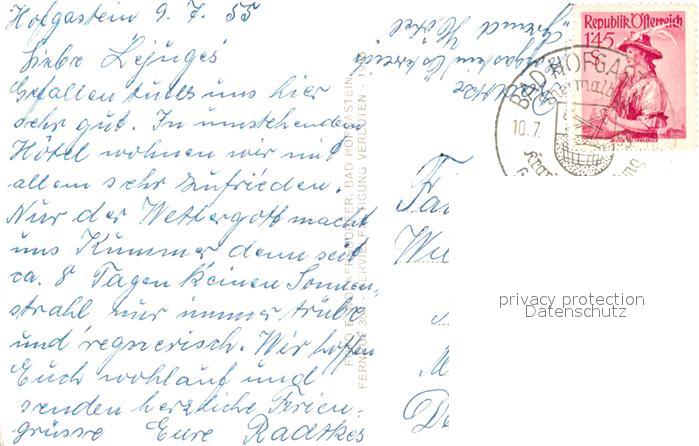 Hofgastein 9. 7. 55
Liebe Lejuges
Gefallen tut es uns hier
sehr gut. In umstehendem
Hôtel wohnen wir mit
allem sehr zufrieden.
Nur der Wettergott macht
uns Kummer denn seit
ca. 8 Tagen keinen Sonnen-
strahl nur immer trübe
und regnerisch. Wir hoffen
Euch wohlauf und
senden herzliche Ferien-
grüsse Eure Radtkes
Radtke
Hofgastein Österreich
"Grand Hôtel"
FERNRUF
VERVIELFÄLTIGUNG VERBOTEN
BAD HOFGASTEIN
Republik Österreich
1.45
S
BAD HOFGAS
Thermalb
10.7.
Fa
Wi
M
D
privacy protection
Datenschutz